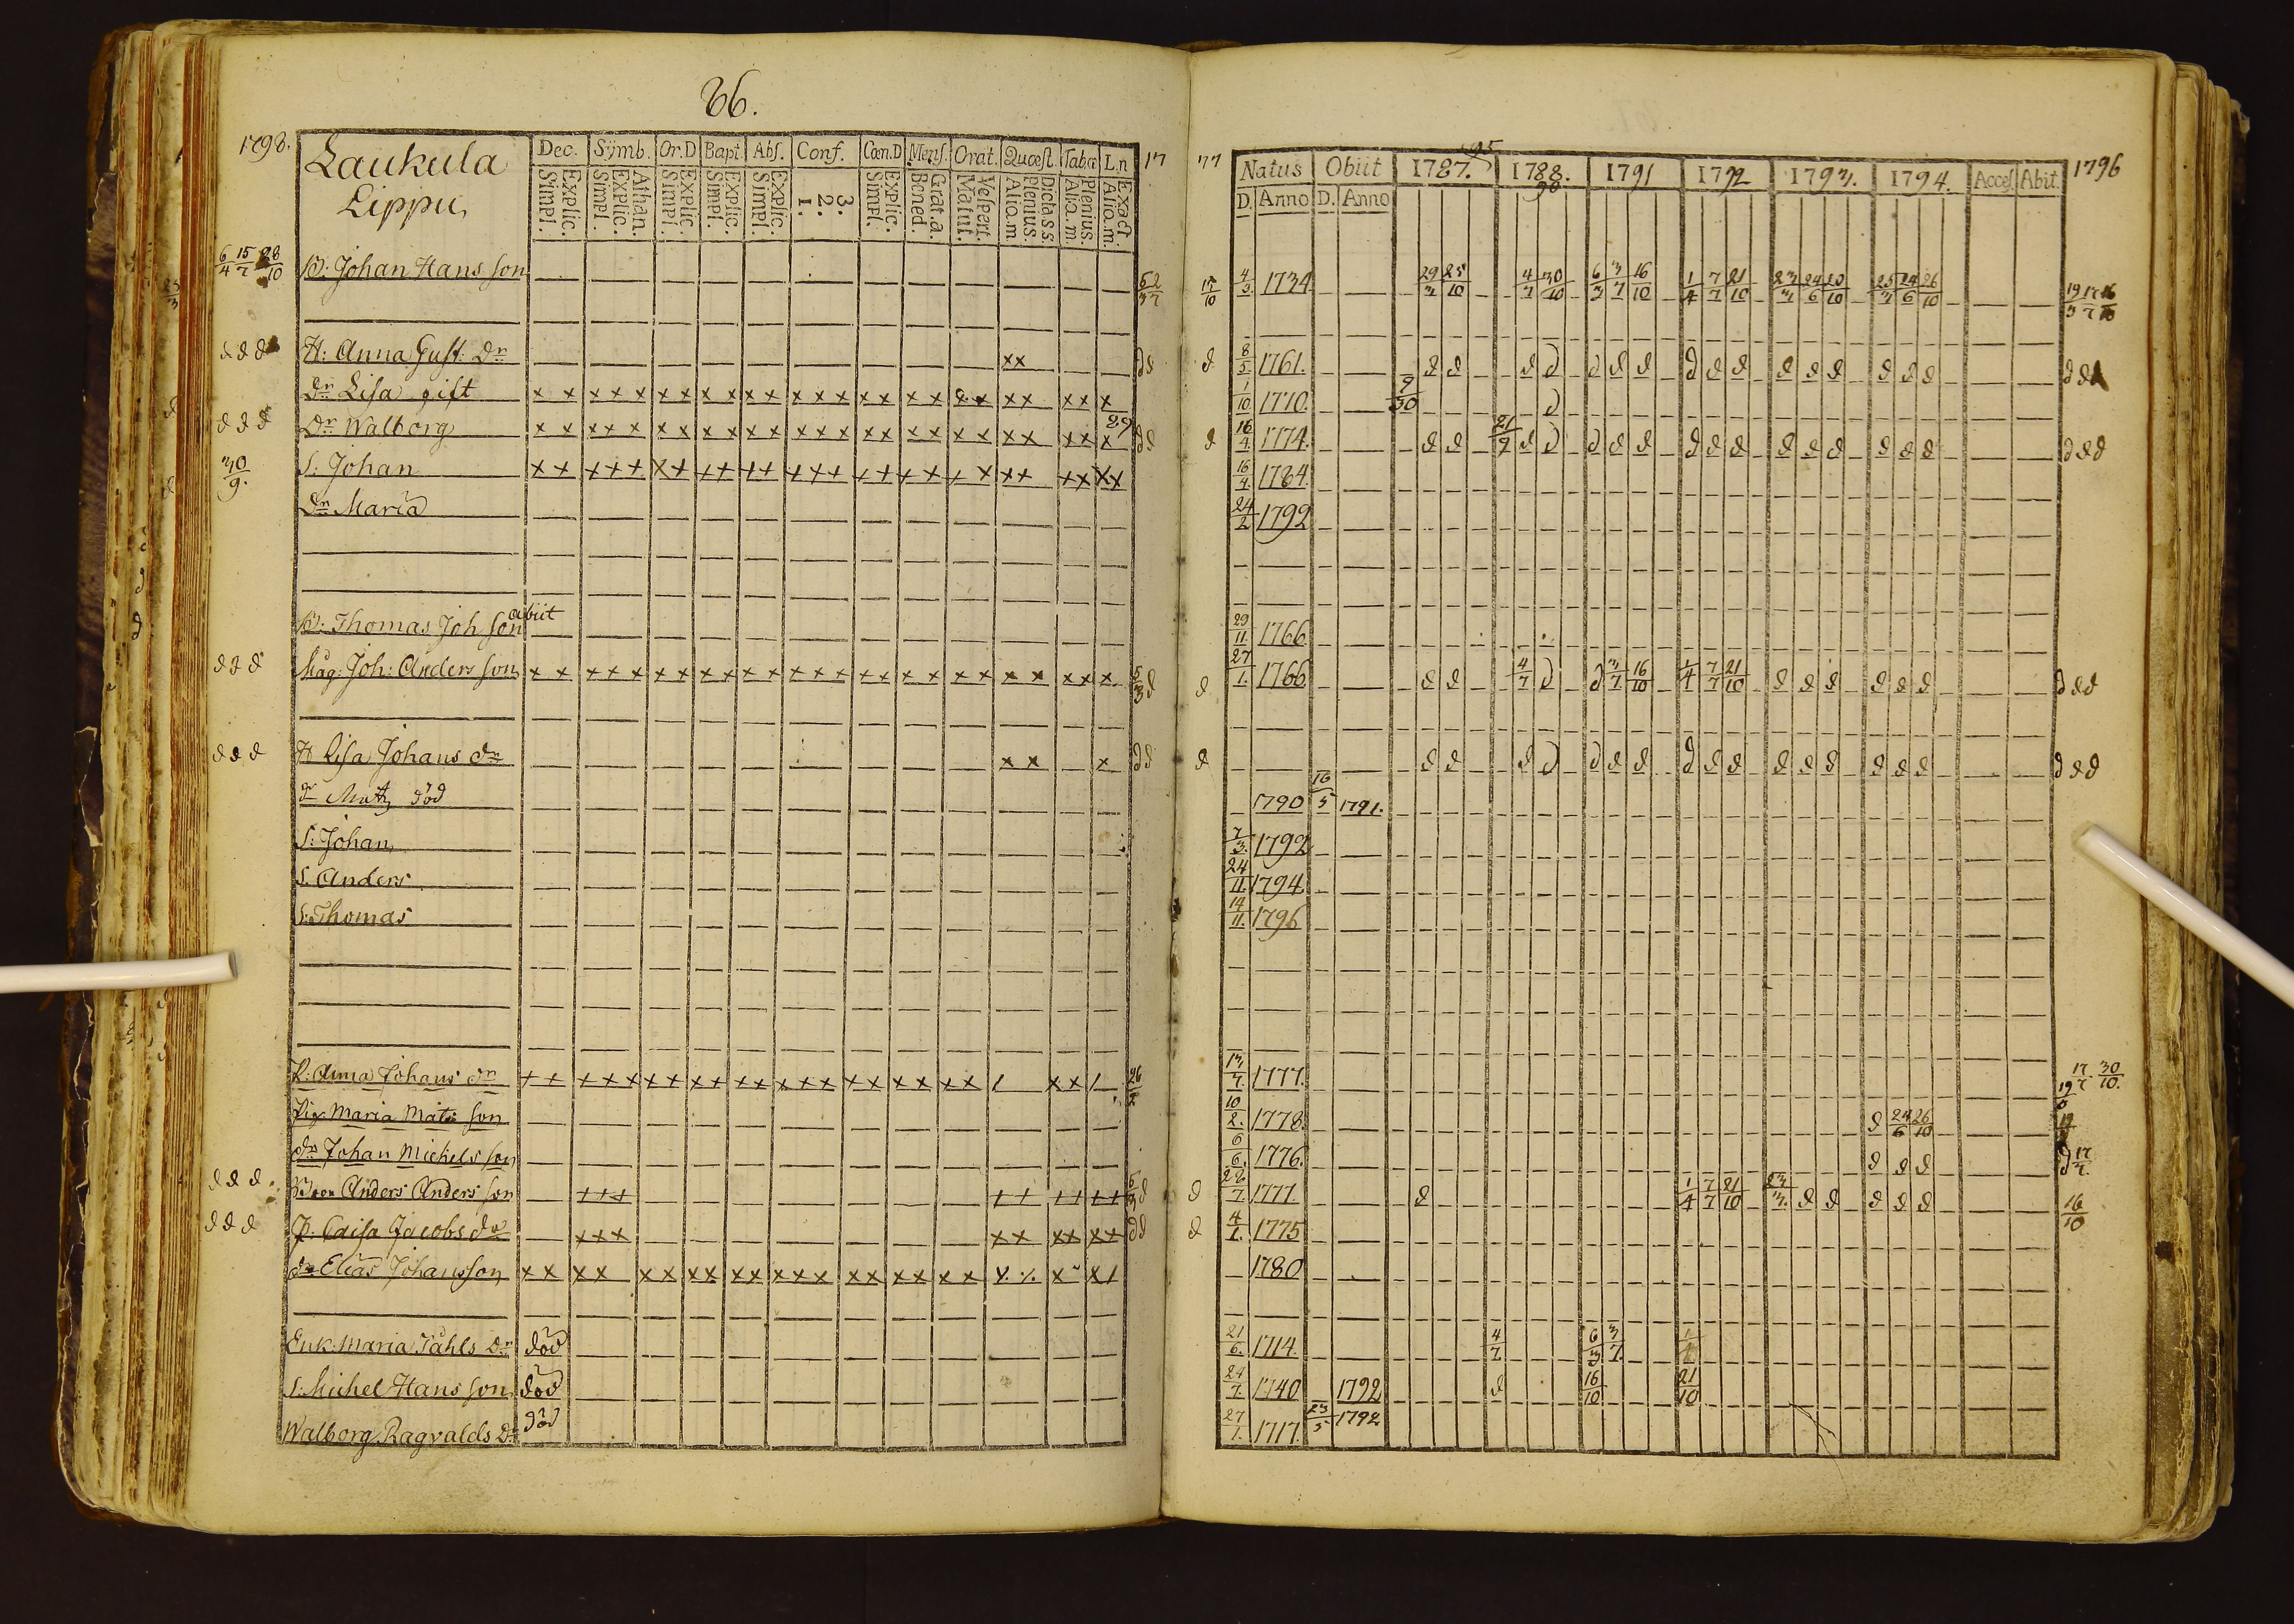 86.
1798.
Laukula
Lippu
Dec. Symb. Or.D Bapt. Abs. Conf. Cœn.D Mens. Orat. Quæst. Tabæ L.n 17
Explic. Simpl. Athan. Explic. Simpl. Explic. Simpl. Explic. Simpl. Explic. Simpl. 3. 2. 1. Explic. Simpl. Grat.a. Bened. Vespert. Matut. Dicta S.S. Plenius. Aliq.m Plenius. Aliq.m. Exact Aliq.m.
6/4 15/7 28/10 B: Johan Hans son
d d d H: Anna Gust: Dr x x d d
Dr Lisa gift x x x x x x x x x x x x x x x x x x x x x x x x
d d d Dr Walborg x x x x x x x x x x x x x x x x x x x x x x x x x 29 d d
30/9. S: Johan x x x x x x x x x x x x x x x x x x x x x x x x x x
Dr Maria
B: Thomas Joh son abiit
d d d Måg: Joh: Anders son x x x x x x x x x x x x x x x x x x x x x x x x x 5/3 d
d d d H Lisa Johans dr x x x d d
Matz död
S: Johan
S. Anders
S: Thomas
P: Anna Johans dr x x x x x x x x x x x x x x x x x x x x / x x /
Pig Maria Mats son
dr Johan Mickels son
d d d Anders Anders son x x x x x x x x x
d d d P: Caisa Jacobs dr x x x x x x x x x d d
dr Elias Johansson x x x x x x x x x x x x x x x x x x
Enk: Maria Påhls Dr död
S: Michel Hans son död
Walborg Ragvalds Dr död
77 Natus Obiit 1787. 95 1788. 90 1791 1792 1793. 1794. Acces. Abit. 1796
D. Anno D. Anno
17/10 4/9 1734 29/3 25/10 4/7 30/10 6/3 3/7 16/10 1/4 7/7 21/10 23/3 24/6 20/10 25/3 24/6 26/10 19/3 17/7 16/10
d 8/5 1761. d d d d d d d d d d d d d d d d d d
1/10 1770. 9/30 d
d 16/4 1774. d d 21/7 d d d d d d d d d d d d d d d d d
16/4 1784.
24/2 1792
29/11. 1766
d 27/1. 1766 d d 4/7 d d 3/7 16/10 1/4 7/7 21/10 d d d d d d d d d
d d d d d d d d d d d d d d d d d d d
1790 16/5 1791.
7/3. 1792
24/11. 1794
14/11. 1796
13/7 1777. 17/7 30/10.
10/2. 1778. d 24/6 26/10
6/6. 1776. d d d d 17/7
d 22/7 1777. d 1/4 7/7 21/10 23/3. d d d d d 16/10
d 4/1. 1775
1780
21/6. 1714. 4/7 6/3 3/7
24/7 1740 1792 d 16/10 21/10
27/1. 1717. 23/5 1792